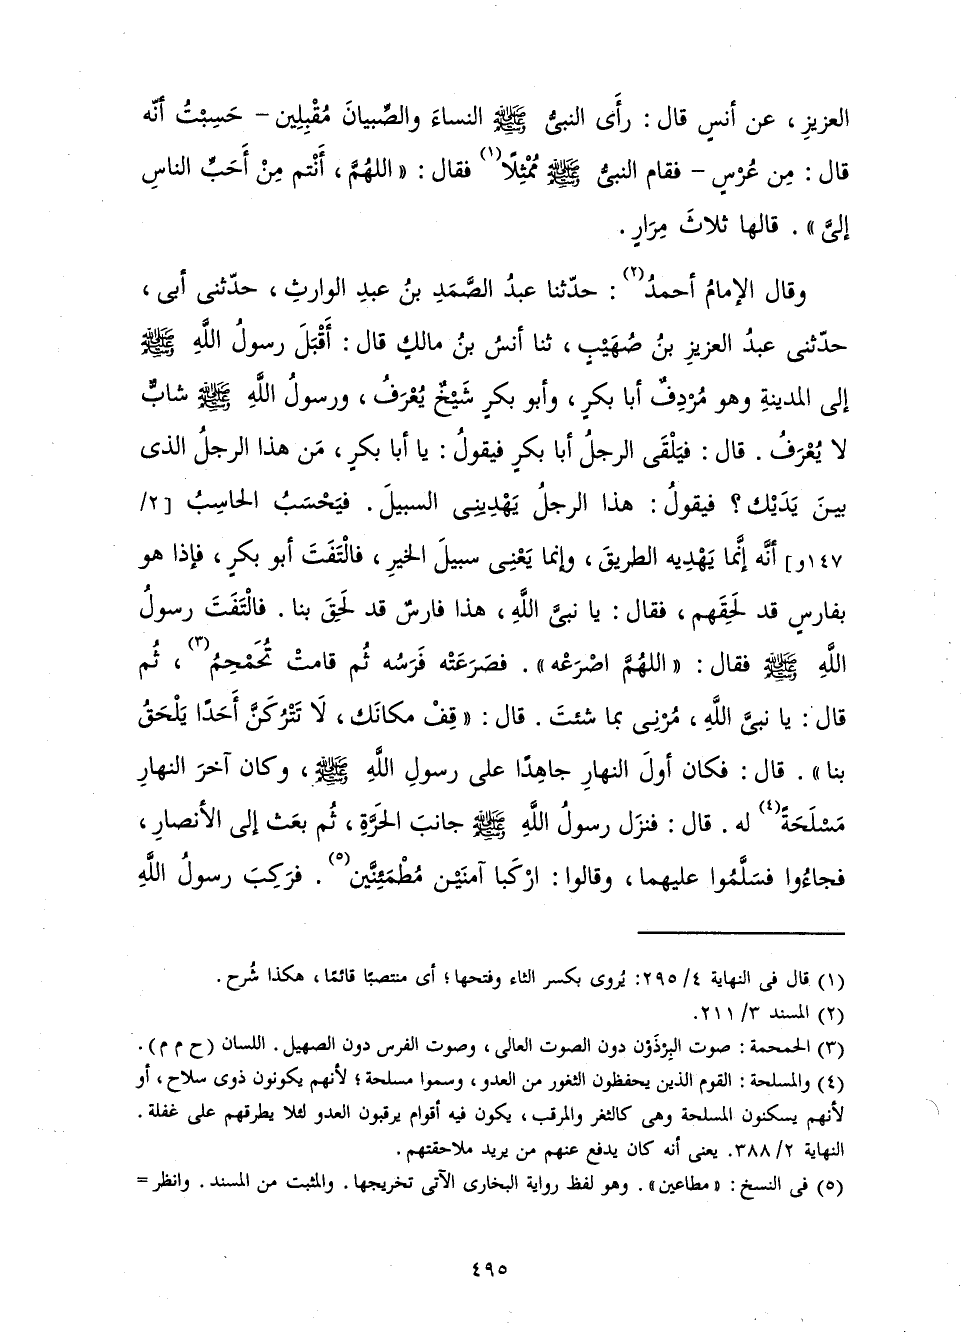 العزيزِ، عن أنسٍ قال: رأَى النبىُّ ﷺ النساءَ والصِّبيانَ مُقْبِلِين – حَسِبْتُ أنَّه
قال: مِن عُرْسٍ – فقام النبىُّ ﷺ مُمْثِلًا(١) فقال: «اللهُمَّ، أَنْتم مِنْ أَحَبِّ الناسِ
إلىَّ». قالها ثلاثَ مِرَارٍ.
وقال الإمامُ أحمدُ(٢): حدّثنا عبدُ الصَّمَدِ بنُ عبدِ الوارثِ، حدّثنى أبى،
حدّثنى عبدُ العزيزِ بنُ صُهَيْبٍ، ثنا أنسُ بنُ مالكٍ قال: أَقْبَلَ رسولُ اللَّهِ ﷺ
إلى المدينةِ وهو مُرْدِفٌ أبا بكرٍ، وأبو بكرٍ شَيْخٌ يُعْرَفُ، ورسولُ اللَّهِ ﷺ شابٌّ
لا يُعْرَفُ. قال: فيَلْقَى الرجلُ أبا بكرٍ فيقولُ: يا أبا بكرٍ، مَن هذا الرجلُ الذى
بينَ يَدَيْك؟ فيقولُ: هذا الرجلُ يَهْدِينِى السبيلَ. فيَحْسَبُ الحاسِبُ [٢/
١٤٧و] أنَّه إنَّما يَهْدِيه الطريقَ، وإنما يَعْنِى سبيلَ الخيرِ، فالْتَفَتَ أبو بكرٍ، فإذا هو
بفارسٍ قد لَحِقَهم، فقال: يا نبىَّ اللَّهِ، هذا فارسٌ قد لَحِقَ بنا. فالْتَفَتَ رسولُ
اللَّهِ ﷺ فقال: «اللهُمَّ اصْرَعْه». فصَرَعَتْه فَرَسُه ثُم قامتْ تُحَمْحِمُ(٣)، ثُم
قال: يا نبىَّ اللَّهِ، مُرْنِى بما شئتَ. قال: «قِفْ مكانَك، لَا تَتْرُكَنَّ أَحَدًا يَلْحَقُ
بنا». قال: فكان أولَ النهارِ جاهِدًا على رسولِ اللَّهِ ﷺ، وكان آخرَ النهارِ
مَسْلَحَةً(٤) له. قال: فنزَل رسولُ اللَّهِ ﷺ جانبَ الحَرَّةِ، ثُم بعَث إلى الأنصارِ،
فجاءُوا فسَلَّمُوا عليهما، وقالوا: ارْكَبا آمنَيْن مُطْمَئِنَّين(٥). فرَكِبَ رسولُ اللَّهِ
(١) قال فى النهاية ٤/ ٢٩٥: يُروى بكسر الثاء وفتحها؛ أى منتصبًا قائمًا، هكذا شُرح.
(٢) المسند ٣/ ٢١١.
(٣) الحمحمة: صوت البِرْذَوْن دون الصوت العالى، وصوت الفرس دون الصهيل. اللسان (ح م م).
(٤) والمسلحة: القوم الذين يحفظون الثغور من العدو، وسموا مسلحة؛ لأنهم يكونون ذوى سلاح، أو
لأنهم يسكنون المسلحة وهى كالثغر والمرقب، يكون فيه أقوام يرقبون العدو لئلا يطرقهم على غفلة.
النهاية ٢/ ٣٨٨. يعنى أنه كان يدفع عنهم من يريد ملاحقتهم.
(٥) فى النسخ: «مطاعين». وهو لفظ رواية البخارى الآتى تخريجها. والمثبت من المسند. وانظر =
٤٩٥